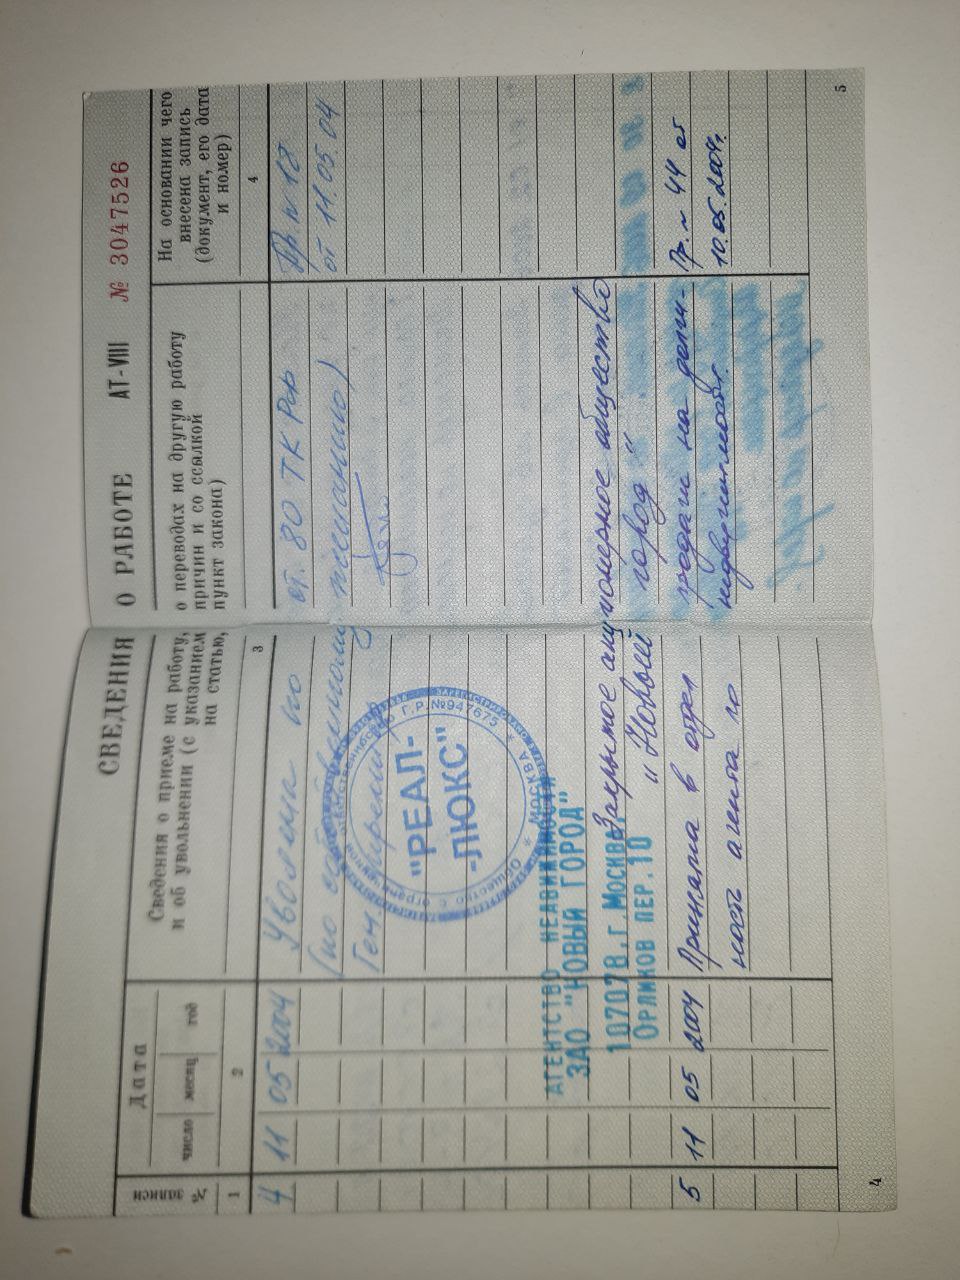 СВЕДЕНИЯ О РАБОТЕ АТ-VIII № 3047526
№ записи
Дата
число месяц год
Сведения о приеме на работу, о переводах на другую работу
и об увольнении (с указанием причин и со ссылкой
на статью, пункт закона)
На основании чего
внесена запись
(документ, его дата
и номер)
1 2 3 4
4 11 05 2004 Уволена по ст. 80 ТК РФ Пр. № 18
(по собственному желанию) от 11.05.04
Ген. директор
Общество с ограниченной ответственностью Г.Р.№947675 * МОСКВА *
"РЕАЛ-
-ЛЮКС"
АГЕНТСТВО НЕДВИЖИМОСТИ
ЗАО "НОВЫЙ ГОРОД"
107078, г. Москва,
Орликов пер. 10
Закрытое акционерное общество
"Новый город"
5 11 05 2004 Принята в отдел продаж на долж- Пр. № 44 от
ность агента по недвижимости. 10.05.2004г.
4
5